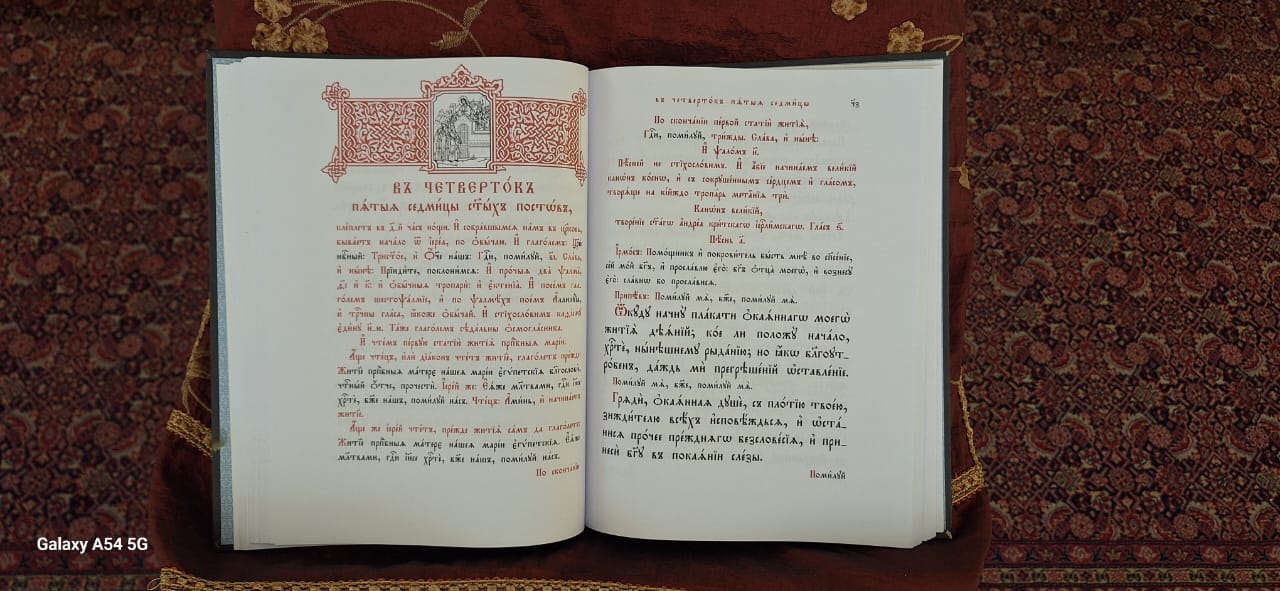 въ четверто́къ
пѧ́тыѧ седми́цы ст҃ы́хъ посто́въ,
кле́плетъ въ д҃.й ча́съ но́щи. И҆ собра́вшымсѧ на́мъ въ цр҃ковь,
быва́етъ нача́ло ѿ і҆ере́а, по ѻ҆бы́чаю. И҆ глаго́лемъ: Цр҃ю̀
нбⷭ҇ный: Трист҃о́е, и҆ Ѻ҆́ч҃е на́шъ: Гдⷭ҇и, поми́лꙋй, в҃і. Сла́ва,
и҆ ны́нѣ: Прїиди́те, поклони́мсѧ: И҆ про́чыѧ два̀ ѱалма̑,
и҆ к҃: и҆ ѻ҆бы́чныѧ тропари̑: и҆ є҆ктенїа̀. И҆ пое́мъ гла-
го́лемъ шестоѱа́лмїе, и҆ по ѱалмѣ́хъ пое́мъ А҆ллилꙋ́їа,
и҆ трⷪ҇чны гла́са, ꙗ҆́коже ѻ҆бы́чай. И҆ стїхосло́вимъ каѳі́смꙋ
є҆ди́нꙋ и҃.ю. Та́же глаго́лемъ сѣда́льны ѻ҆смогла́сника.
И҆ чте́мъ пе́рвꙋю статїю̀ житїѧ̀ прпⷣбныѧ марі́и.
А҆́ще чте́цъ, и҆лѝ дїа́конъ чте́тъ житїѐ, глаго́летъ пре́жде
Житїѐ прпⷣбныѧ ма́тере на́шеѧ марі́и є҆гѵ́петскїѧ. Бл҃гословѝ,
чтⷭ҇ный ѻ҆́тче, проче́сти. І҆ере́й же: Є҆ѧ́же мл҃твами, гдⷭ҇и і҆и҃се
хрⷭ҇тѐ, бж҃е на́шъ, поми́лꙋй на́съ. Чте́цъ: А҆ми́нь, и҆ начина́етъ
житїѐ.
А҆́ще же і҆ере́й чте́тъ, пре́жде житїѧ̀ са́мъ да глаго́летъ:
Житїѐ прпⷣбныѧ ма́тере на́шеѧ марі́и є҆гѵ́петскїѧ. Є҆ѧ́же
мл҃твами, гдⷭ҇и і҆и҃се хрⷭ҇тѐ, бж҃е на́шъ, поми́лꙋй на́съ.
По сконча́нїи
въ четверто́къ пѧ́тыѧ седми́цы
По сконча́нїи пе́рвой статїѝ житїѧ̀,
Гдⷭ҇и, поми́лꙋй, три́жды. Сла́ва, и҆ ны́нѣ:
И҆ ѱало́мъ н҃.
Пѣ́сней не стїхосло́вимъ. И҆ а҆́бїе начина́емъ вели́кїй
канѡ́нъ ко́снѡ, и҆ съ сокрꙋше́ннымъ се́рдцемъ и҆ гла́сомъ,
творѧ́ще на кі́йждо тропа́рь мета̑нїѧ трѝ.
Канѡ́нъ вели́кїй,
творе́нїе ст҃а́гѡ а҆ндре́а кри́тскагѡ і҆ерⷭ҇ли́мскагѡ. Гла́съ ѕ҃.
Пѣ́снь а҃.
І҆рмо́съ: Помо́щникъ и҆ покрови́тель бы́сть мнѣ̀ во сп҃се́нїе,
се́й мо́й бг҃ъ, и҆ просла́влю є҆го̀: бг҃ъ ѻ҆тца̀ моегѡ̀, и҆ вознесꙋ̀
є҆го̀: сла́внѡ бо просла́висѧ.
Припѣ́въ: Поми́лꙋй мѧ̀, бж҃е, поми́лꙋй мѧ̀.
Ѿкꙋ́дꙋ начнꙋ̀ пла́кати ѻ҆каѧ́ннагѡ моегѡ̀
житїѧ̀ дѣѧ́нїй; ко́е ли положꙋ̀ нача́ло,
хрⷭ҇тѐ, ны́нѣшнемꙋ рыда́нїю; но ꙗ҆́кѡ бл҃гоꙋт-
ро́бенъ, да́ждь мѝ прегрѣше́нїй ѡ҆ставле́нїе.
Поми́лꙋй мѧ̀, бж҃е, поми́лꙋй мѧ̀.
Грѧдѝ, ѻ҆каѧ́ннаѧ дꙋшѐ, съ пло́тїю твоє́ю,
зижди́телю всѣ́хъ и҆сповѣ́ждьсѧ, и҆ ѡ҆ста-
ни́сѧ про́чее пре́ждѧгѡ безслове́сїѧ, и҆ при-
несѝ бг҃ꙋ въ покаѧ́нїи сле́зы.
Поми́лꙋй
Galaxy A54 5G